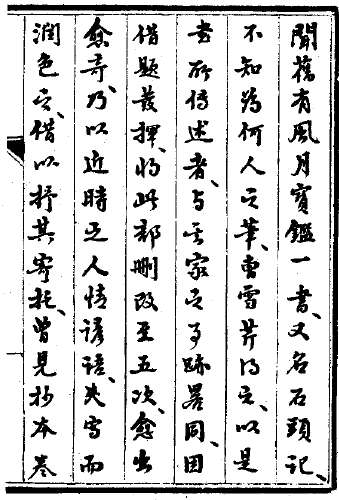 聞舊有風月寶鑑一書、又名石頭記、
不知為何人之筆、曹雪芹得之、以是
書所傳述者、与其家之事跡畧同、因
借題發揮、將此部刪改至五次、愈出
愈奇、乃以近時之人情諺語、夾寫而
潤色之、借以抒其寄托、曾見抄本卷